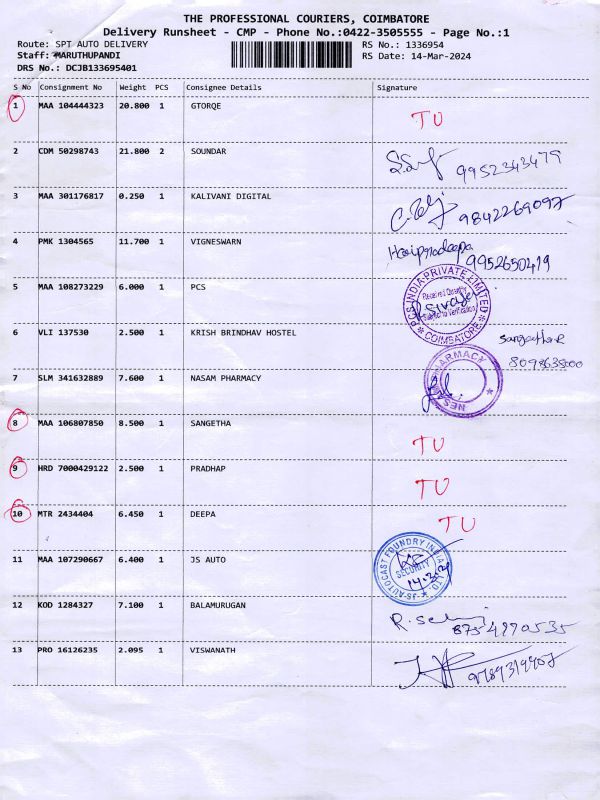 THE PROFESSIONAL COURIERS, COIMBATORE
Delivery Runsheet - CMP - Phone No.:0422-3505555 - Page No.:1
Route: SPT AUTO DELIVERY RS No.: 1336954
Staff: MARUTHUPANDI RS Date: 14-Mar-2024
DRS No.: DCJB133695401
S No Consignment No Weight PCS Consignee Details Signature
1 MAA 104444323 20.800 1 GTORQE TU
2 CDM 50298743 21.800 2 SOUNDAR 9952343479
3 MAA 301176817 0.250 1 KALIVANI DIGITAL 9842269097
4 PMK 1304565 11.700 1 VIGNESWARN Haripradeepa 9952650419
5 MAA 108273229 6.000 1 PCS PCS INDIA PRIVATE LIMITED COIMBATORE
6 VLI 137530 2.500 1 KRISH BRINDHAV HOSTEL
7 SLM 341632889 7.600 1 NASAM PHARMACY PHARMACY
8 MAA 106807850 8.500 1 SANGETHA TU
9 HRD 7000429122 2.500 1 PRADHAP TU
10 MTR 2434404 6.450 1 DEEPA TU
11 MAA 107290667 6.400 1 JS AUTO JS AUTOCAST FOUNDRY INDIA SECURITY
12 KOD 1284327 7.100 1 BALAMURUGAN
13 PRO 16126235 2.095 1 VISWANATH